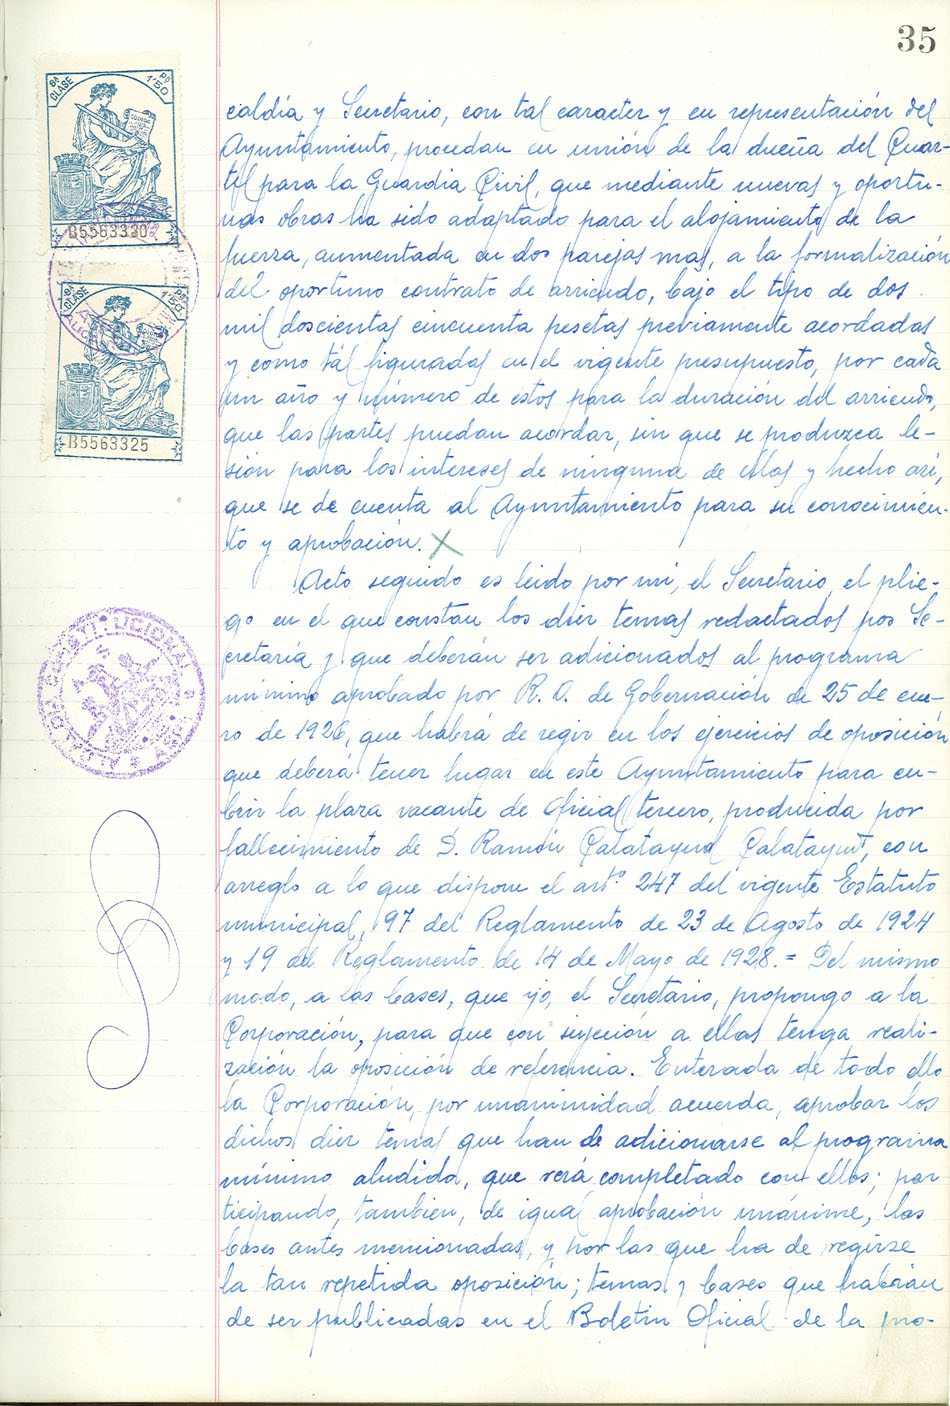 35
8ª CLASE
1'50 Pts
B5563330
8ª CLASE
1'50 Pts
B5563325
caldía y Secretario, con tal caracter y en representación del
Ayuntamiento, procedan en unión de la dueña del Cuar-
tel para la Guardia Civil, que mediante nuevas y oportu-
nas obras ha sido adaptado para el alojamiento de la
fuerza, aumentada en dos parejas mas, a la formalización
del oportuno contrato de arriendo, bajo el tipo de dos
mil doscientas cincuenta pesetas previamente acordadas
y como tal figurados en el vigente presupuesto, por cada
un año y número de estos para la duración del arriendo,
que las partes puedan acordar, sin que se produzca le-
sión para los intereses de ninguna de ellas y hecho así,
que se de cuenta al Ayuntamiento para su conocimien-
to y aprobación.
Acto seguido es leido por mí, el Secretario, el plie-
go en el que constan los diez temas redactados por Se-
cretaría y que deberán ser adicionados al programa
mínimo aprobado por R. O. de Gobernación de 25 de ene-
ro de 1926, que habrá de regir en los ejercicios de oposición
que deberá tener lugar en este Ayuntamiento para cu-
brir la plaza vacante de Oficial tercero, producida por
fallecimiento de D. Ramón Calatayud Calatayud, con
arreglo a lo que dispone el artº 247 del vigente Estatuto
municipal, 97 del Reglamento de 23 de Agosto de 1924
y 19 del Reglamento de 14 de Mayo de 1928.= Del mismo
modo, a las bases, que yo, el Secretario, propongo a la
Corporación, para que con sujeción a ellas tenga reali-
zación la oposición de referencia. Enterada de todo ello
la Corporación, por unanimidad acuerda, aprobar los
dichos diez temas que han de adicionarse al programa
mínimo aludido, que será completado con ellos; par
ticipando, tambien, de igual aprobación unánime, las
bases antes mencionadas, y por las que ha de regirse
la tan repetida oposición; temas y bases que habrán
de ser publicadas en el Boletin Oficial de la pro-